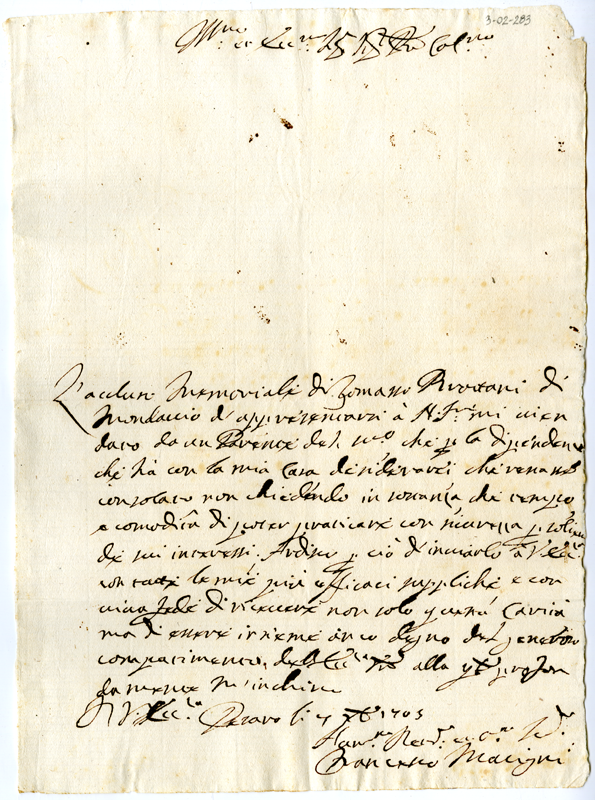 3-02-283
Ill.mo et Ecc.mo Sig.r Sig.r Pron Col.mo
L'acclus Memoriale di Tomasso di
Mondaccio d'appresentarsi a N. Sig.re mi vien
dato da un Parente del med.o che p la dipendenza
che hà con la mia Casa desidererei che restasse
consolato non chiedendo in sostanza che tempo
e comodità di poter praticare con sicurezza p
de suoi interessi. Ardisco p ciò d'inviarlo à V. Ecc.
con tutte le mie più efficaci suppliche e con
viva fede di ricevere non solo questa Carità
ma di essere insieme anco degno del generoso
compatimento dell'Ecc.a V.ra alla q.le profon
damente m'inchino
Di V. Ecc.a Pesaro li 1703
Hum.mo Dev.mo et Obl.mo Ser.re
Francesco